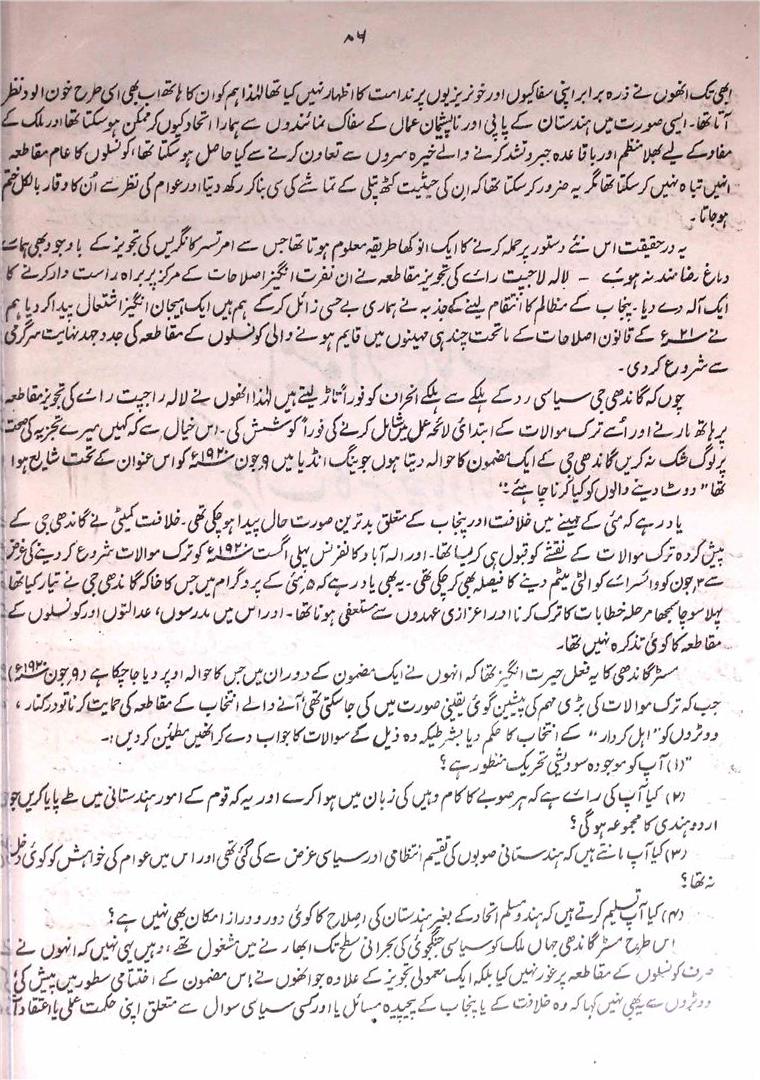 ۸۶
ابھی تک انھوں نے ذرہ برابر اپنی سفاکیوں اور خونریزیوں پر ندامت کا اظہار نہیں کیا تھا لہٰذا ہم کو ان کا ہاتھ اب بھی اسی طرح خون آلود نظر
آتا تھا۔ ایسی صورت میں ہندستان کے پاپی اور ناپشیمان عمال کے سفاک نمائندوں سے ہمارا اتحاد کیوں کر ممکن ہو سکتا تھا اور ملک کے
مفاد کے لیے بھلا منظم اور باقاعدہ جبر و تشدد کرنے والے خیرہ سروں سے تعاون کرنے سے کیا حاصل ہو سکتا تھا، کونسلوں کا عام مقاطعہ
انہیں تباہ نہیں کر سکتا تھا مگر یہ ضرور کر سکتا تھا کہ ان کی حیثیت کٹھ پتلی کے تماشے کی سی بنا کر رکھ دیتا اور عوام کی نظر سے اُن کا وقار بالکل ختم
ہو جاتا۔
یہ درحقیقت اس نئے دستور پر حملہ کرنے کا ایک انوکھا طریقہ معلوم ہوتا تھا جس سے امرتسر کانگریس کی تجویز کے باوجود بھی ہمارے
دماغ رضامند نہ ہوئے – لالہ لاجپت رائے کی تجویز مقاطعہ نے ان نفرت انگیز اصلاحات کے مرکز پر براہ راست وار کرنے کا
ایک آلہ دے دیا۔ پنجاب کے مظالم کا انتقام لینے کے جذبہ نے ہماری بے حسی زائل کر کے ہم میں ایک ہیجان انگیز اشتعال پیدا کر دیا ہم
نے ۲۱ء کے قانون اصلاحات کے ماتحت چند ہی مہینوں میں قایم ہونے والی کونسلوں کے مقاطعہ کی جدوجہد نہایت سرگرمی
سے شروع کر دی۔
چوں کہ گاندھی جی سیاسی رو کے ہلکے سے ہلکے انحراف کو فوراً تاڑ لیتے ہیں لہٰذا انھوں نے لالہ راجپت رائے کی تجویز مقاطعہ
پر ہاتھ مارنے اور اُسے ترک موالات کے ابتدائی لائحہ عمل میں شامل کرنے کی فوراً کوشش کی۔ اس خیال سے کہ کہیں میرے تجزیہ کی صحت
پر لوگ شک نہ کریں گاندھی جی کے ایک مضمون کا حوالہ دیتا ہوں جو ینگ انڈیا میں ۹ جون ۱۹۲۰ء کو اس عنوان کے تحت شایع ہوا
تھا "ووٹ دینے والوں کو کیا کرنا چاہئے"
یاد رہے کہ مئی کے مہینے میں خلافت اور پنجاب کے متعلق بدترین صورت حال پیدا ہو چکی تھی۔ خلافت کمیٹی نے گاندھی جی کے
پیش کردہ ترک موالات کے نقشے کو قبول ہی کر لیا تھا۔ اور الہ آباد کانفرنس پہلی اگست ۱۹۲۰ء کو ترک موالات شروع کر دینے کی غرض
سے ۳ جون کو وائسرائے کو الٹی میٹم دینے کا فیصلہ بھی کر چکی تھی۔ یہ بھی یاد رہے کہ ۵ مئی کے پروگرام میں جس کا خاکہ گاندھی جی نے تیار کیا تھا
پہلا سوچا سمجھا مرحلہ خطابات کا ترک کرنا اور اعزازی عہدوں سے مستعفی ہونا تھا۔ اور اس میں مدرسوں، عدالتوں اور کونسلوں کے
مقاطعہ کا کوئی تذکرہ نہیں تھا۔
مسٹر گاندھی کا یہ فعل حیرت انگیز تھا کہ انہوں نے ایک مضمون کے دوران میں جس کا حوالہ اوپر دیا جا چکا ہے (۹ جون ۱۹۲۰ء)
جب کہ ترک موالات کی بڑی مہم کی پیشین گوئی یقینی صورت میں کی جا سکتی تھی آنے والے انتخاب کے مقاطعہ کی حمایت کرنا تو درکنار،
ووٹروں کو "اہل کردار" کے انتخاب کا حکم دیا بشرطیکہ وہ ذیل کے سوالات کا جواب دے کر انھیں مطمئن کر دیں:-
"(۱) آپ کو موجودہ سودیشی تحریک منظور ہے؟
(۲) کیا آپ کی رائے ہے کہ ہر صوبے کا کام وہیں کی زبان میں ہوا کرے اور یہ کہ قوم کے امور ہندستانی میں طے پایا کریں جو
اردو ہندی کا مجموعہ ہو گی؟
(۳) کیا آپ مانتے ہیں کہ ہندستانی صوبوں کی تقسیم انتظامی اور سیاسی غرض سے کی گئی تھی اور اس میں عوام کی خواہش کو کوئی دخل
نہ تھا؟
(۴) کیا آپ تسلیم کرتے ہیں کہ ہندو مسلم اتحاد کے بغیر ہندستان کی اصلاح کا کوئی دور و دراز امکان بھی نہیں ہے؟
اس طرح مسٹر گاندھی جہاں ملک کو سیاسی جنگجوئی کی بحرانی سطح تک ابھارنے میں مشغول تھے وہیں یہی نہیں کہ انہوں نے
صرف کونسلوں کے مقاطعہ پر غور نہیں کیا بلکہ ایک معمولی تجویز کے علاوہ جو انھوں نے اس مضمون کے اختتامی سطور میں پیش کی
ووٹروں سے یہ بھی نہیں کہا کہ وہ خلافت کے یا پنجاب کے پیچیدہ مسائل یا اور کسی سیاسی سوال سے متعلق اپنی حکمت عملی یا اعتقاد